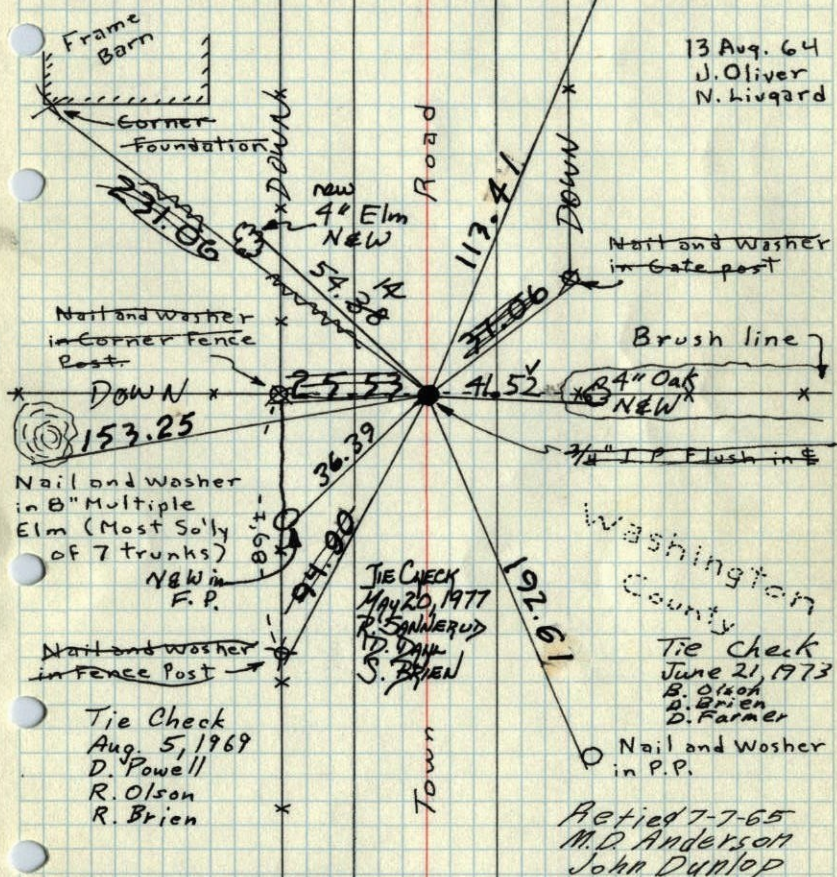 Frame
Barn
13 Aug. 64
J. Oliver
N. Livgard
Corner
Foundation
DOWN
Road
DOWN
231.06
new
4" Elm
N&W
54.38
113.41
Nail and Washer
in Gate post
31.06
Nail and Washer
in Corner Fence
Post.
Brush line
DOWN
25.53
41.52
4" Oak
N&W
153.25
3/4" I.P. Flush in ℄
36.39
Nail and Washer
in 8" Multiple
Elm (Most So'ly
of 7 trunks)
N&W in
F.P.
94.90
192.61
Washington
County
TIE CHECK
MAY 20, 1977
R. SANNERUD
D. DAHL
S. BRIEN
Tie Check
June 21, 1973
B. Olson
D. Brien
D. Farmer
Nail and Washer
in Fence Post
Tie Check
Aug. 5, 1969
D. Powell
R. Olson
R. Brien
Town
Nail and Washer
in P.P.
Retied 7-7-65
M.D. Anderson
John Dunlop